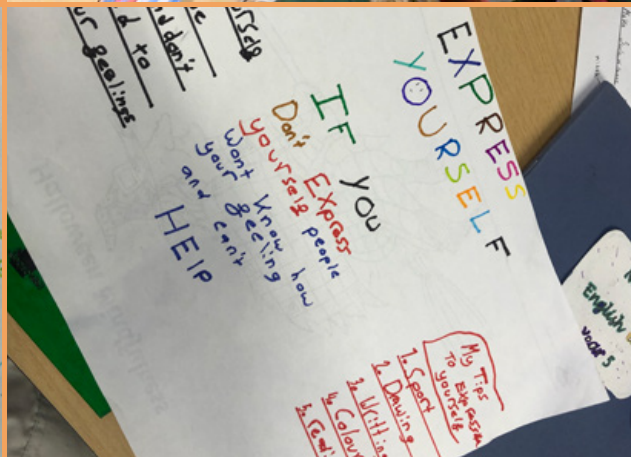 EXPRESS
YOURSELF
IF YOU
Don't Express
yourself people
wont know how
your feeling
and can't
HELP
My Tips
To Expression
yourself
1. Sport
2. Drawing
3. Writting
4. Colour
5. readi
don't
to
feelings
English
year 5